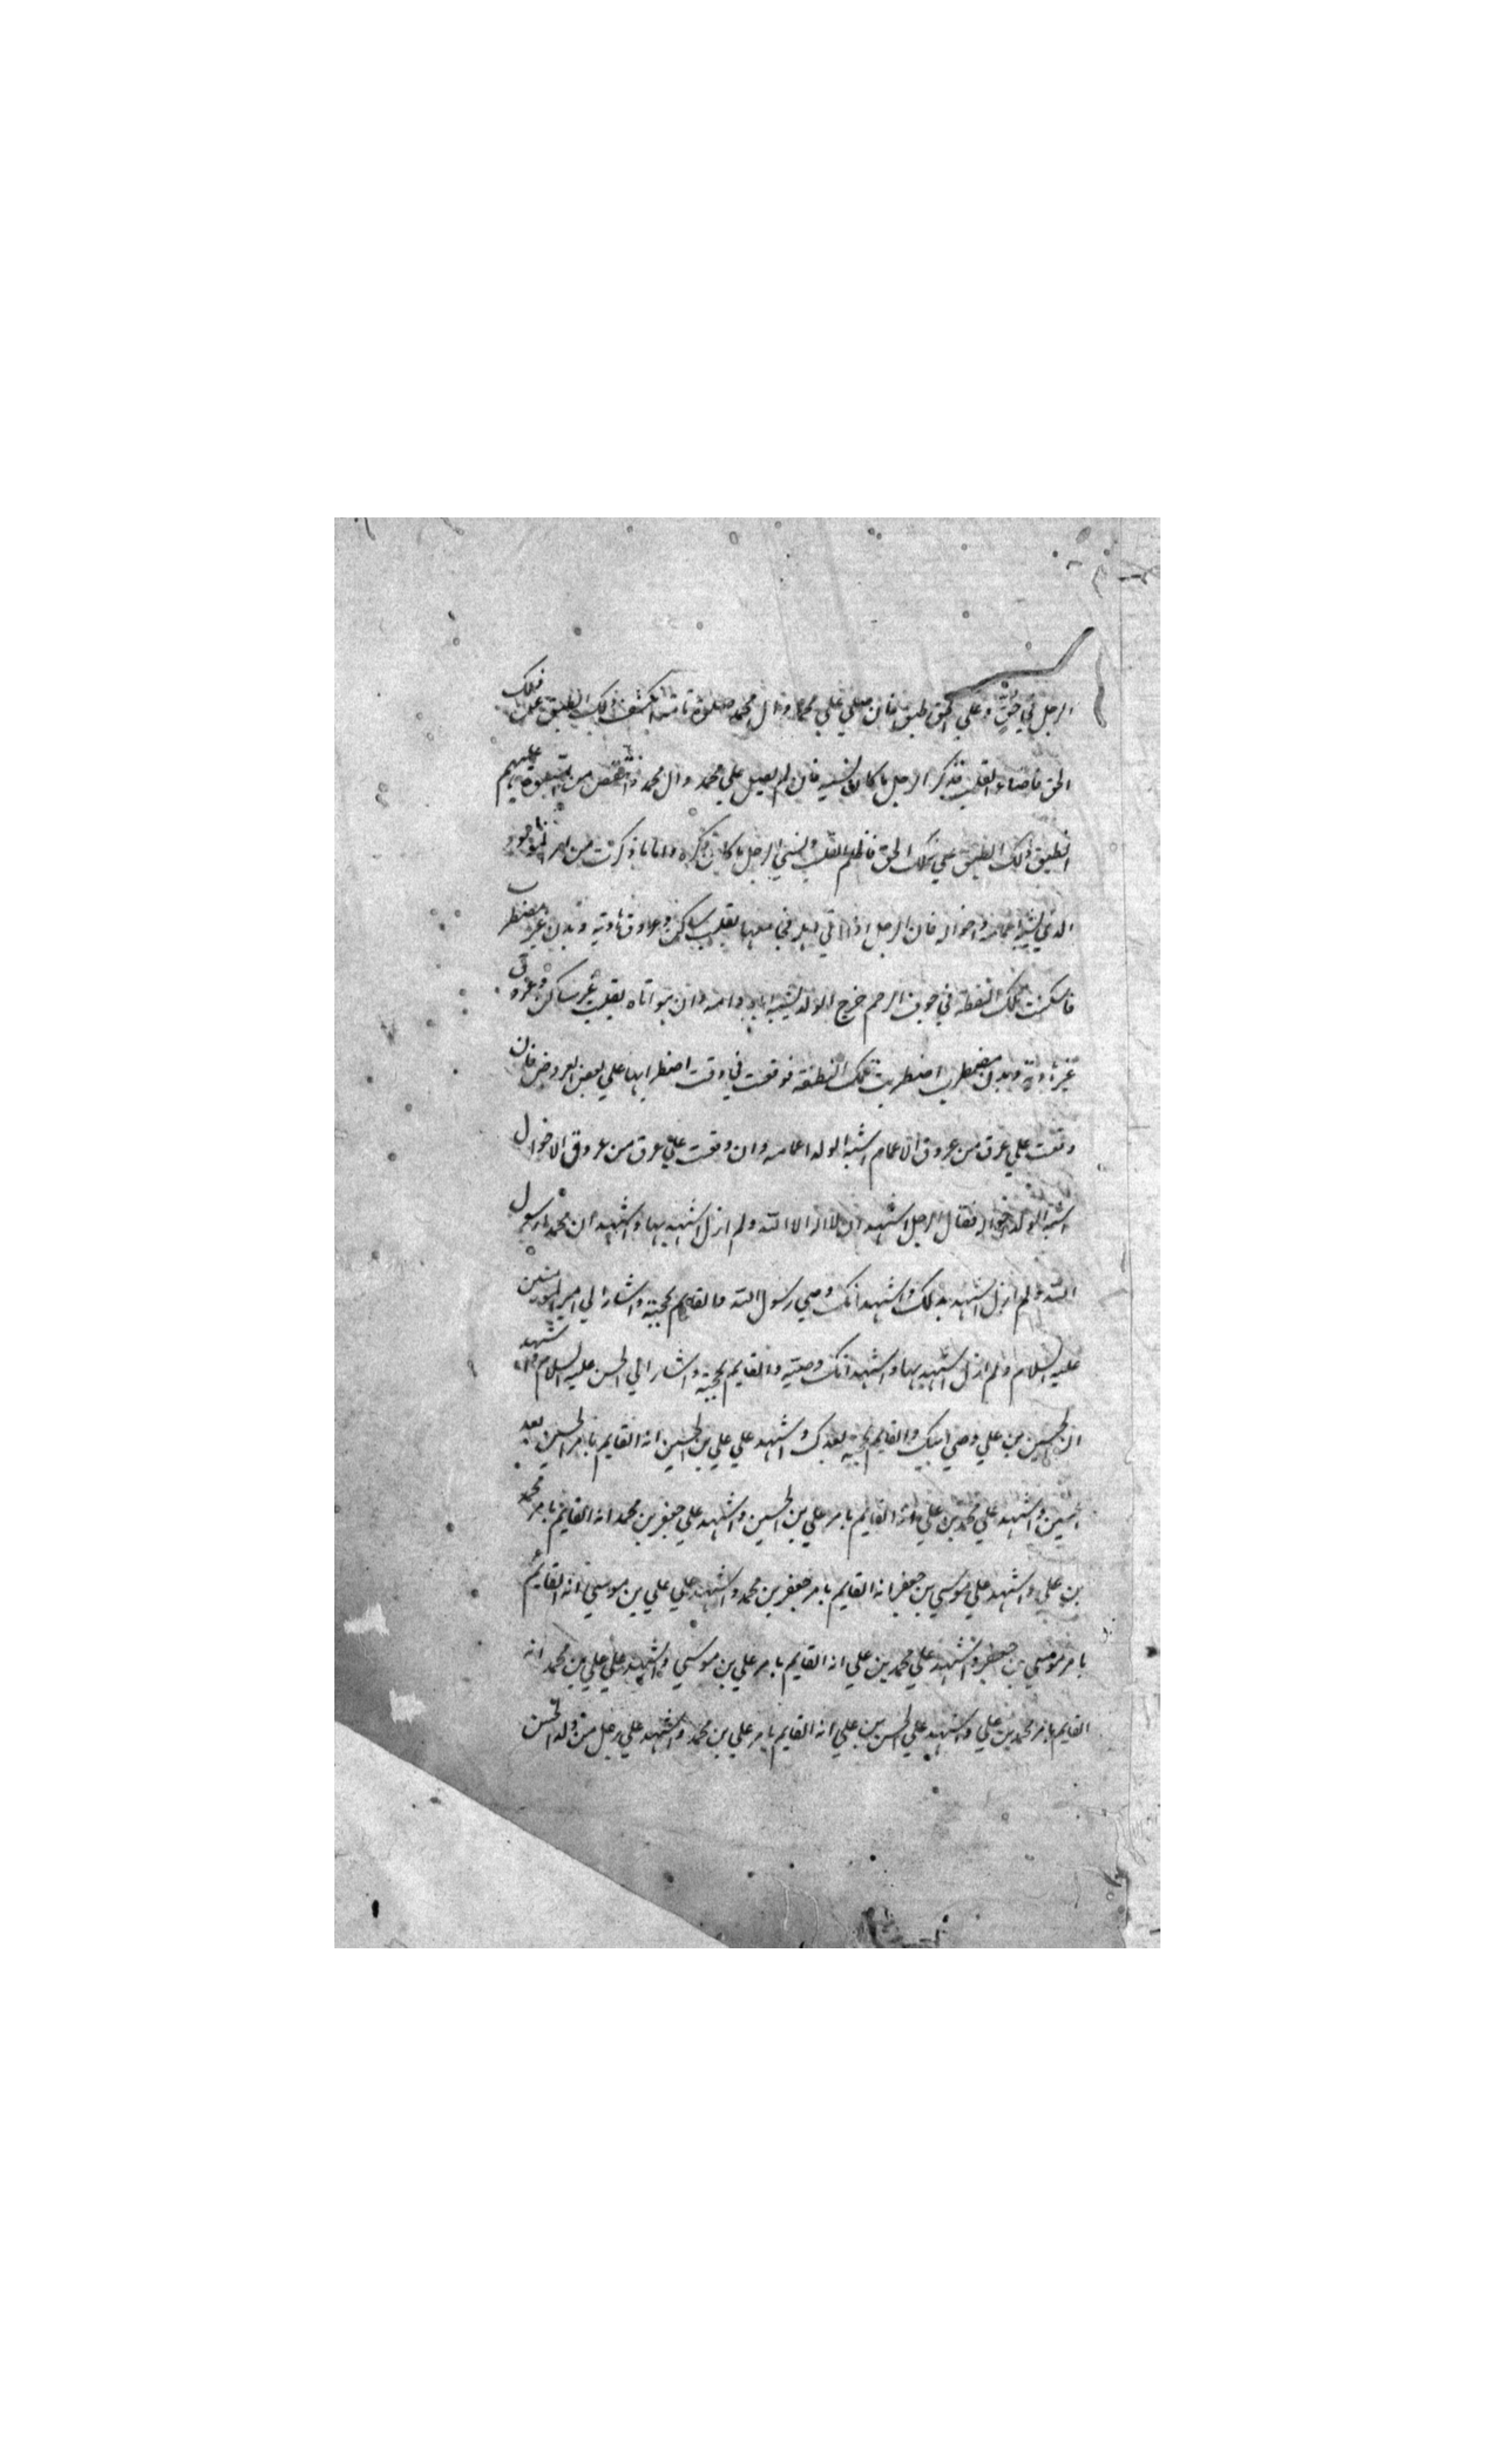 الرجل في حق وعلي الحق طبق فان صلي علي محمد وال محمد صلوة تامة انكشف ذلك الطبق عن ذلك
الحق فاضاء القلب وذكر الرجل ما كان نسيه فان لم يصل علي محمد وال محمد او نقص من الصلوة عليهم
انطبق ذلك الطبق علي ذلك الحق فاظلم القلب ونسي الرجل ما كان ذكره واما ما ذكرت من امر المولود
الذي يشبه اعمامه واخواله فان الرجل اذا اتي اهله فجامعها بقلب ساكن وعروق هادية وبدن غير مضطرب
فاسكنت تلك النطفة في جوف الرحم خرج الولد يشبه اباه وامه وان هو اتاه بقلب غير ساكن وعروق
غير هادية وبدن مضطرب اضطربت تلك النطفة فوقعت في وقت اضطرابها علي بعض العروض فان
وقعت علي عرق من عروق الاعمام اشبه الولد اعمامه وان وقعت علي عرق من عروق الاخوال
اشبه الولد اخواله فقال الرجل اشهد ان لا اله الا الله ولم ازل اشهد بها واشهد ان محمدا رسول
الله ولم ازل اشهد بذلك واشهد انك وصي رسول الله والقايم بحجته واشار الي امير المؤمنين
عليه السلام ولم ازل اشهد بها واشهد انك وصيه والقايم بحجته واشار الي الحسن عليه السلام واشهد
ان الحسين بن علي وصي ابيك والقايم بحجته بعدك واشهد علي علي بن الحسين انه القايم بامر الحسين بعد
الحسين واشهد علي محمد بن علي انه القايم بامر علي بن الحسين واشهد علي جعفر بن محمد انه القايم بامر محمد
بن علي واشهد علي موسي بن جعفر انه القايم بامر جعفر بن محمد واشهد علي علي بن موسي انه القايم
بامر موسي بن جعفر واشهد علي محمد بن علي انه القايم بامر علي بن موسي واشهد علي علي بن محمد انه
القايم بامر محمد بن علي واشهد علي الحسن بن علي انه القايم بامر علي بن محمد واشهد علي رجل من ولد الحسن